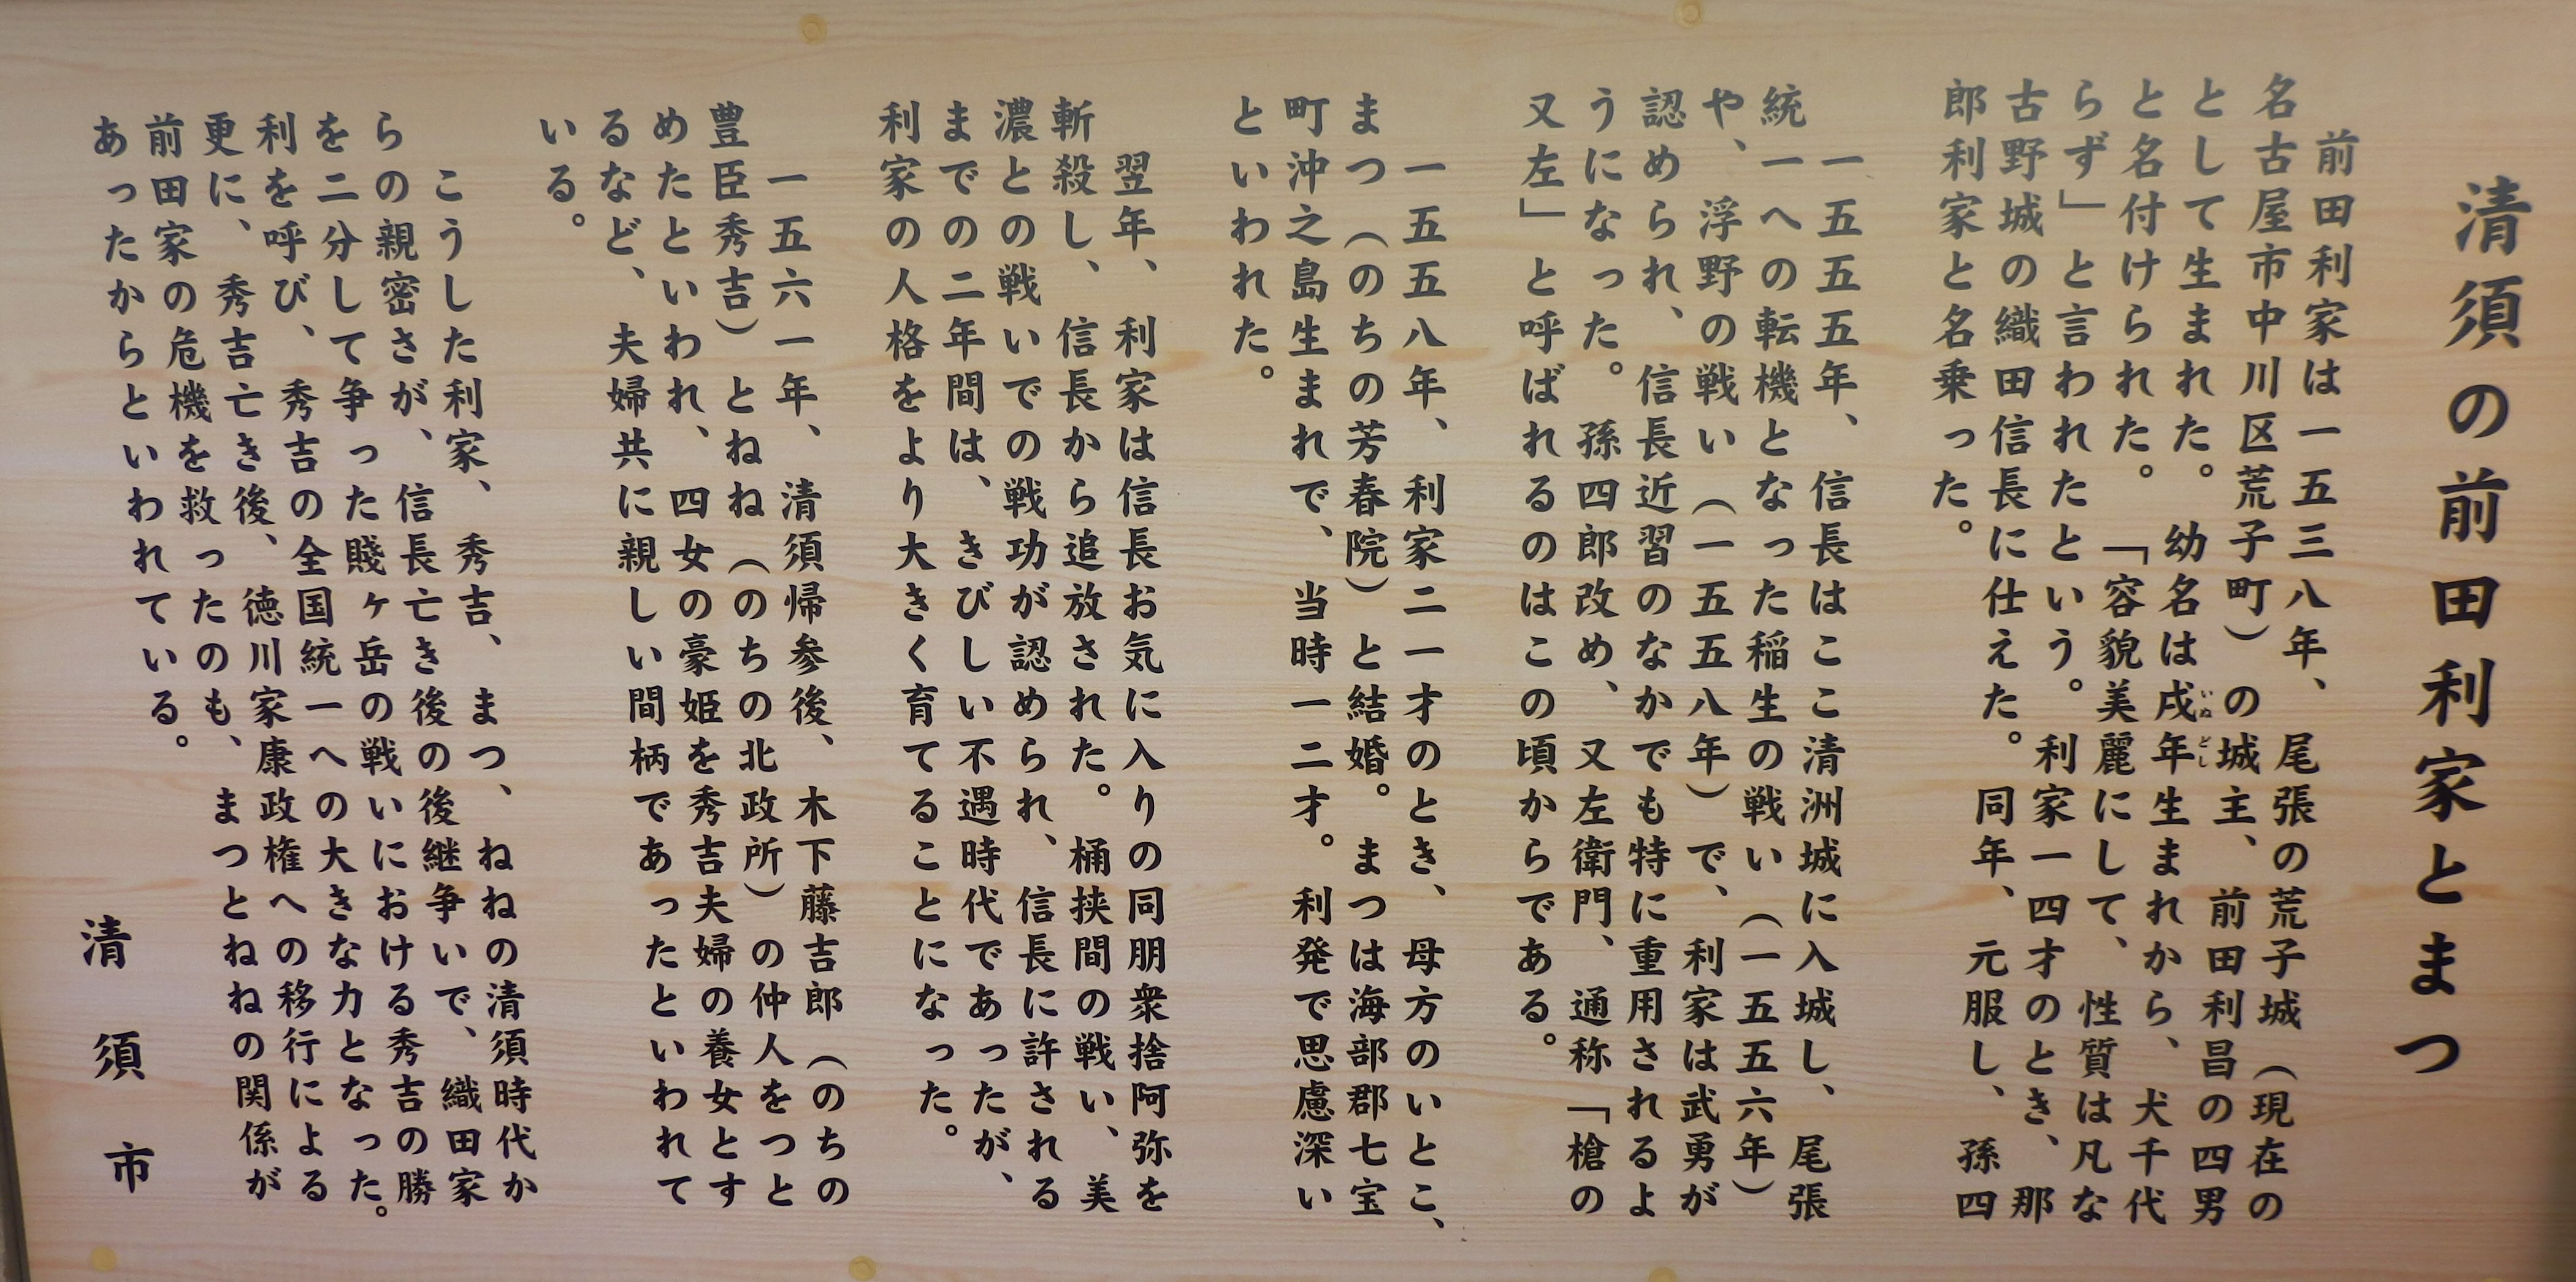 清須の前田利家とまつ
前田利家は一五三八年、尾張の荒子城（現在の
名古屋市中川区荒子町）の城主、前田利昌の四男
として生まれた。幼名は戌年生まれから、犬千代
と名付けられた。「容貌美麗にして、性質は凡な
らず」と言われたという。利家一四才のとき、那
古野城の織田信長に仕えた。同年、元服し、孫四
郎利家と名乗った。
一五五五年、信長はここ清洲城に入城し、尾張
統一への転機となった稲生の戦い（一五五六年）
や、浮野の戦い（一五五八年）で、利家は武勇が
認められ、信長近習のなかでも特に重用されるよ
うになった。孫四郎改め、又左衛門、通称「槍の
又左」と呼ばれるのはこの頃からである。
一五五八年、利家二一才のとき、母方のいとこ、
まつ（のちの芳春院）と結婚。まつは海部郡七宝
町沖之島生まれで、当時一二才。利発で思慮深い
といわれた。
翌年、利家は信長お気に入りの同朋衆捨阿弥を
斬殺し、信長から追放された。桶挟間の戦い、美
濃との戦いでの戦功が認められ、信長に許される
までの二年間は、きびしい不遇時代であったが、
利家の人格をより大きく育てることになった。
一五六一年、清須帰参後、木下藤吉郎（のちの
豊臣秀吉）とねね（のちの北政所）の仲人をつと
めたといわれ、四女の豪姫を秀吉夫婦の養女とす
るなど、夫婦共に親しい間柄であったといわれて
いる。
こうした利家、秀吉、まつ、ねねの清須時代か
らの親密さが、信長亡き後の後継争いで、織田家
を二分して争った賤ヶ岳の戦いにおける秀吉の勝
利を呼び、秀吉の全国統一への大きな力となった。
更に、秀吉亡き後、徳川家康政権への移行による
前田家の危機を救ったのも、まつとねねの関係が
あったからといわれている。
清須市
いぬ どし